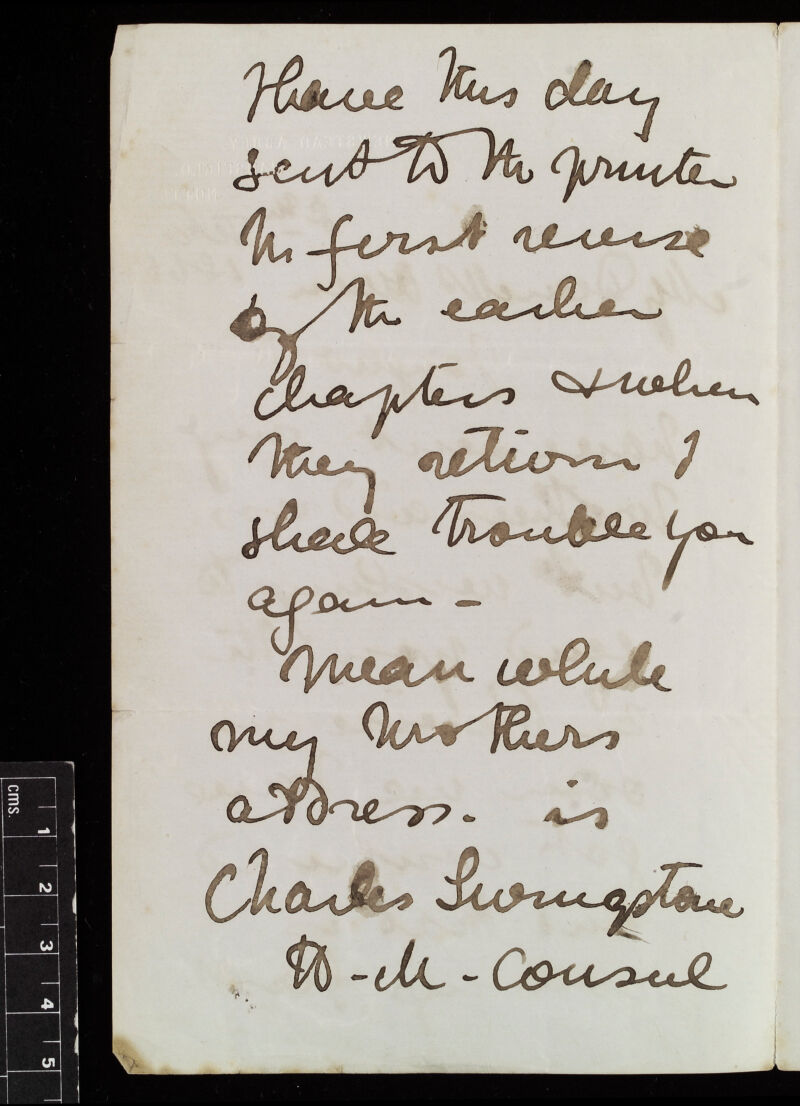 I have this day
sent to the printer
the first revise
of the earlier
chapters & when
they return I
shall trouble you
again -
Mean while
my Brothers
address. is
Charles Livingstone
H-M-Consul
cms
1
2
3
4
5